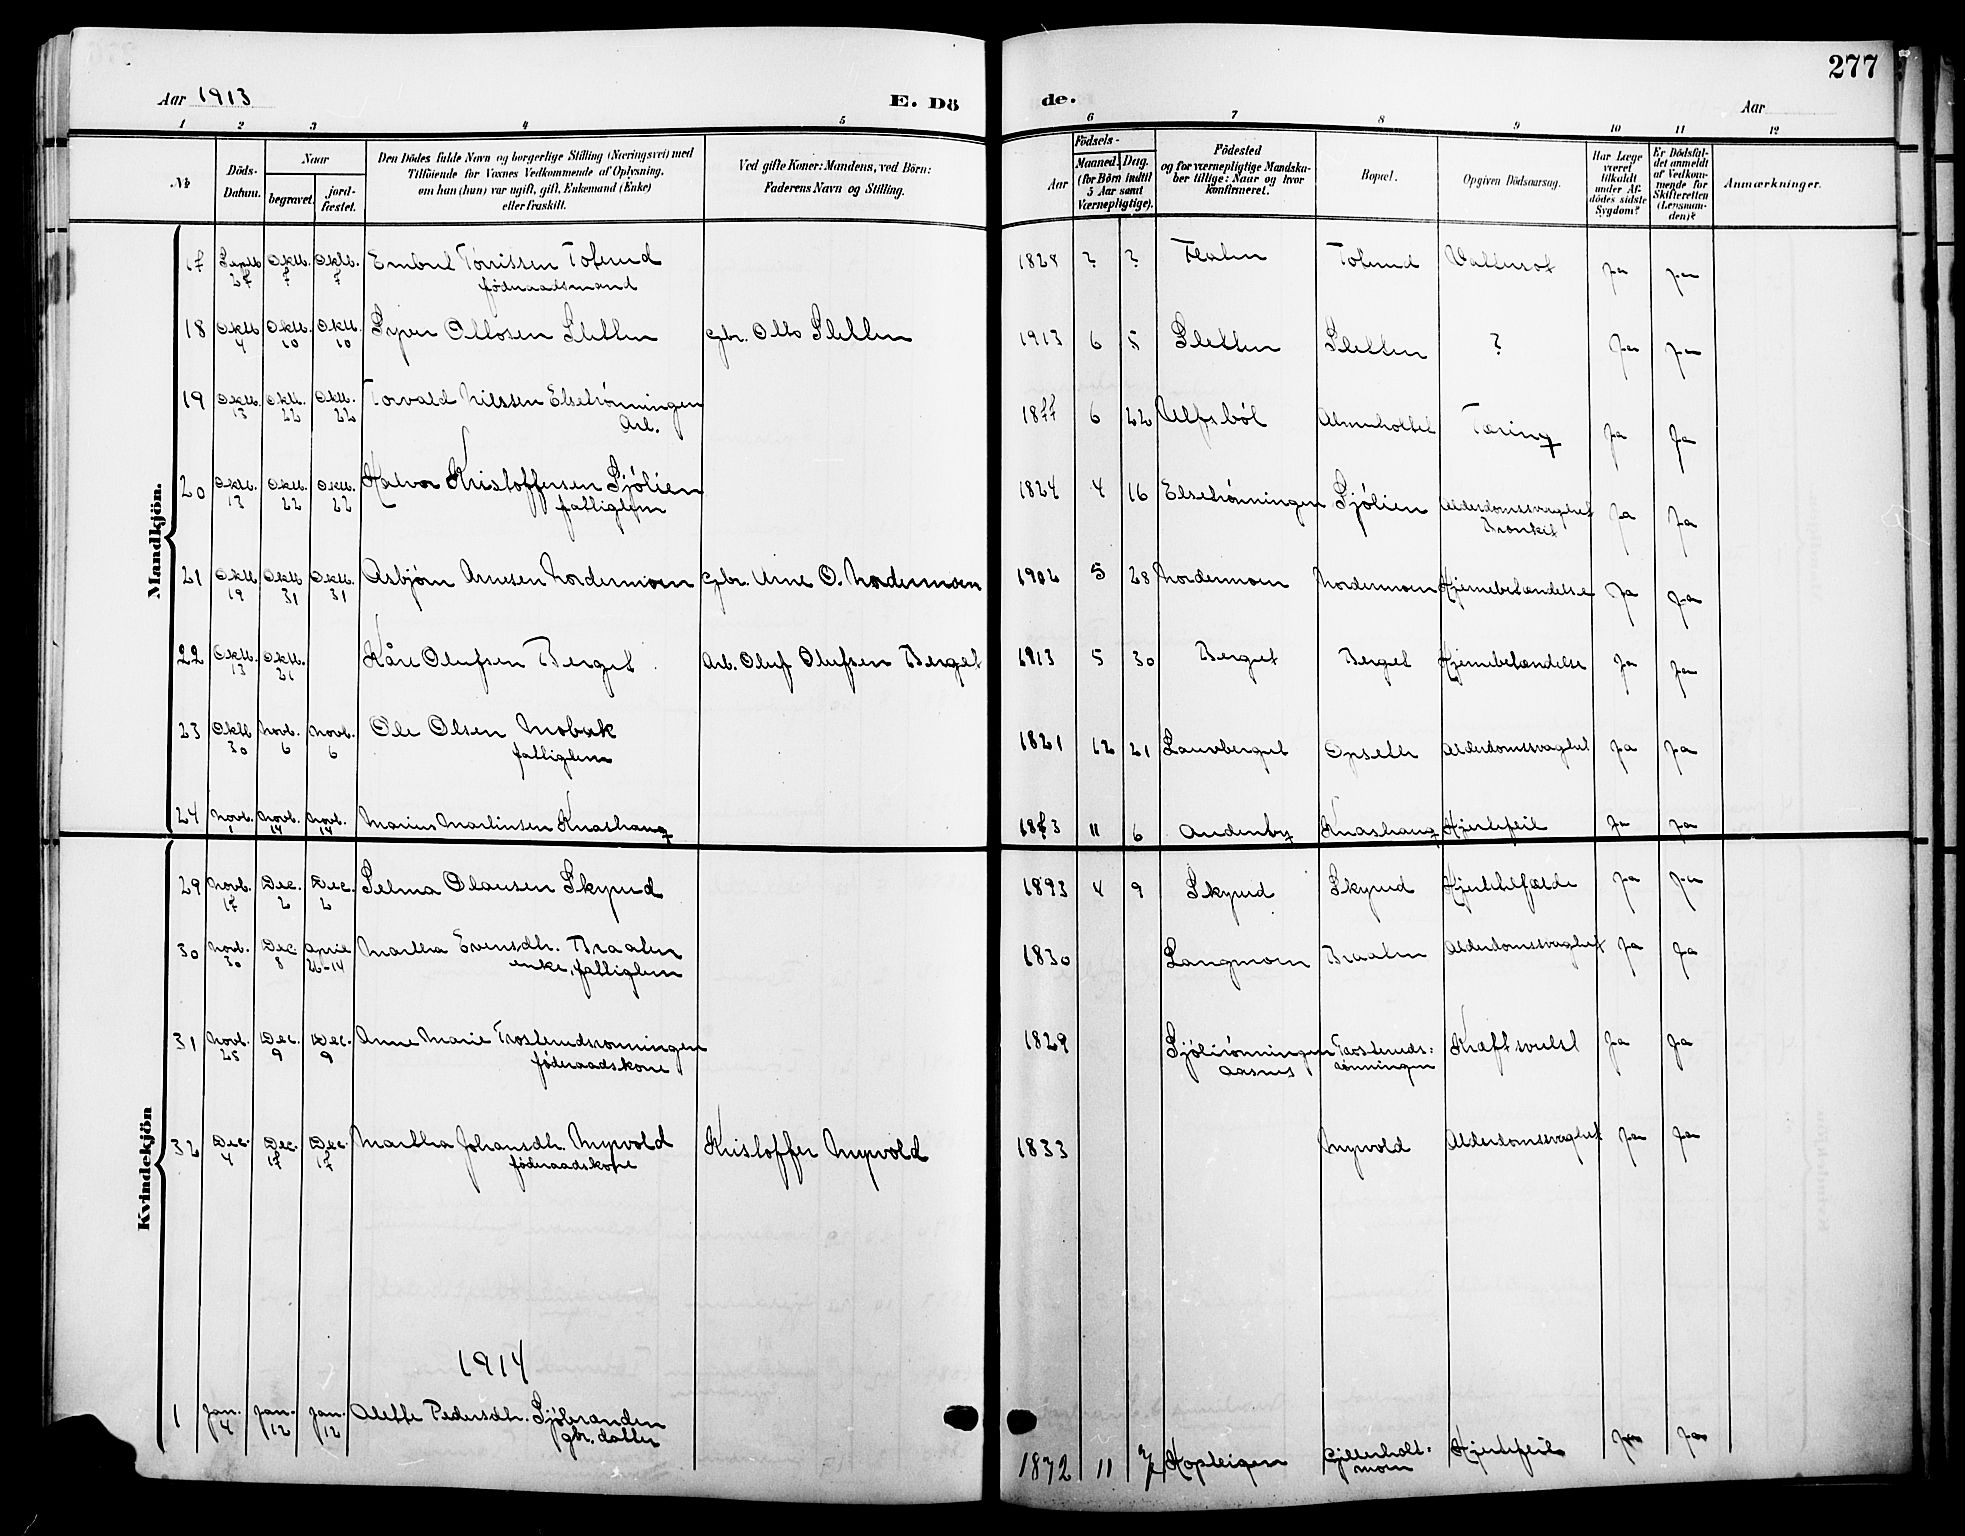 Aar 1913
E. Dö
de.
Aar
277
1 2 3 4 5 6 7 8 9 10 11 12
No
Döds-Datum.
Naar
begravet.
jord-fæstet.
Den Dödes fulde Navn og borgerlige Stilling (Næringsvei) med
Tilföiende for Voxnes Vedkommende af Oplysning,
om han (hun) var ugift, gift, Enkemand (Enke)
eller fraskilt.
Ved gifte Koner: Mandens, ved Börn:
Faderens Navn og Stilling.
Födsels-
Aar
Maaned.
Dag.
(for Börn indtil
5 Aar samt
Værnepligtige).
Födested
og for værnepligtige Mandska-
ber tillige: Naar og hvor
konfirmeret.
Bopæl.
Opgiven Dödsaarsag.
Har Læge
været
tilkaldt
under Af-
dödes sidste
Sygdom?
Er Dödsfal-
det anmeldt
af Vedkom-
mende for
Skifteretten
(Lensman-
den)?
Anmærkninger.
Mandkjön.
17 Septb. 27 Oktb. 7 Oktb. 7 Embret Torrissen Toterud 1828 ? ? Flaten Toterud Vattersot ja ja
föderaadsmand
18 Oktb. 4 Oktb. 10 Oktb. 10 Syver Ottosen Sletten gbr. Otto Sletten 1913 6 5 Sletten Sletten ? ja ja
19 Oktb. 13 Oktb. 22 Oktb. 22 Torvald Nilssen Elsetrönningen 1877 6 22 Ulfsböl Almenhottet Tæring ja ja
Arb.
20 Oktb. 13 Oktb. 22 Oktb. 22 Halvor Kristoffersen Sjölien 1824 4 16 Elsetrönningen Sjölien Alderdomssvaghet ja ja
fattiglem
Bronkit
21 Oktb. 19 Oktb. 31 Oktb. 31 Asbjörn Arnesen Nordermoen gbr. Arne O. Nordermoen 1902 5 28 Nordermoen Nordermoen Hjernebetændelse ja ja
22 Oktb. 13 Oktb. 21 Kåre Olufsen Berget Arb. Oluf Olufsen Berget 1913 5 30 Berget Berget Hjernebetændelse ja ja
23 Oktb. 30 Novb. 6 Novb. 6 Ole Olsen Mobæk 1821 12 21 Laurberget Opseth Alderdomssvaghet ja ja
fattiglem
24 Novb. 1 Novb. 14 Novb. 14 Marius Martinsen Knashaug 11 6 Audenby Knashaug Hjertefeil ja ja
Kvindekjön
29 Novb. 17 Dec. 2 Dec. 2 Selma Olausen Skyrud 1893 4 9 Skyrud Skyrud Hjertetilfælde ja ja
30 Novb. 30 Dec. 8 April 26-14 Martha Evensdtr. Braaten 1830 Langmoen Braaten Alderdomssvaghet ja ja
enke, fattiglem
31 Novb. 25 Dec. 9 Dec. 9 Anne Marie Trosterudrönningen 1829 Sjölirönningen Trosteruds- Kræftsvulst ja ja
föderaadskone
Aasnes
rönningen
32 Dec. 4 Dec. 17 Dec. 17 Martha Johansdtr. Myrvold Kristoffer Myrvold 1833 Myrvold Alderdomssvaghet ja ja
föderaadskone
1914
1 Jan. 4 Jan. 12 Jan. 12 Alette Pedersdtr. Sjöbranden 1872 11 Kopleigen Gjetterholt- Hjertefeil ja ja
gbr. datter
moen